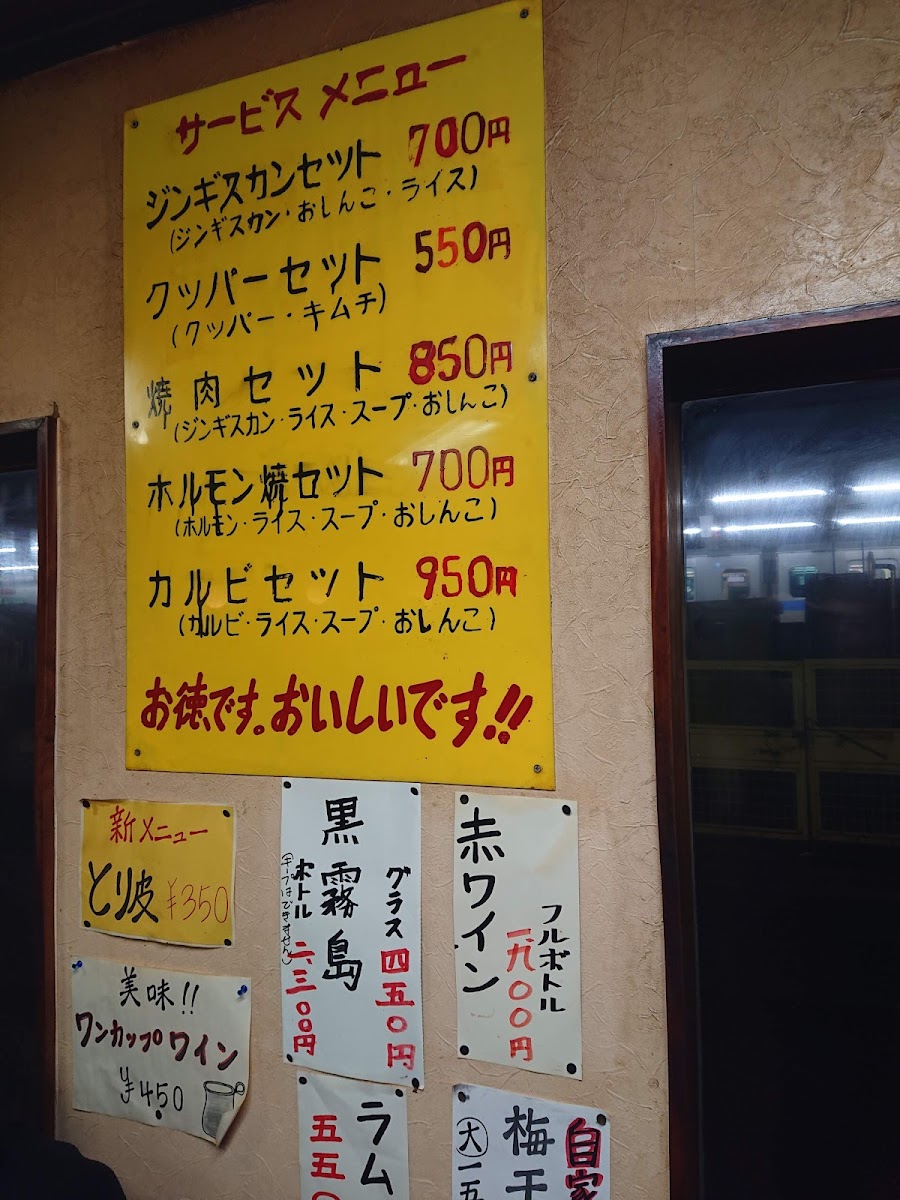 サービス メニュー
ジンギスカンセット 700円
(ジンギスカン・おしんこ・ライス)
クッパーセット 550円
(クッパー・キムチ)
焼肉セット 850円
(ジンギスカン・ライス・スープ・おしんこ)
ホルモン焼セット 700円
(ホルモン・ライス・スープ・おしんこ)
カルビセット 950円
(カルビ・ライス・スープ・おしんこ)
お徳です。おいしいです!!
新メニュー
とり皮 ¥350
美味!!
ワンカップワイン
¥450
黒霧島
グラス 四五〇円
ボトル 二、三〇〇円
(キープはできません)
赤ワイン
フルボトル
一、九〇〇円
ラム
五五〇
自家
梅干
大 一五